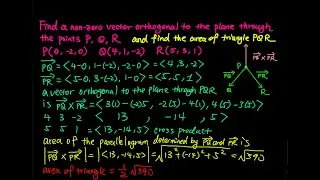 Find a non-zero vector orthogonal to the plane through
the points P, Q, R and find the area of triangle PQR
P(0,-2,0) Q(4,1,-2) R(5,3,1)
PQ = <4-0, 1-(-2), -2-0> = <4,3,-2>
PR = <5-0, 3-(-2), 1-0> = <5,5,1>
a vector orthogonal to the plane through PQR
is PQ×PR = <3(1)-(-2)5, -2(5)-4(1), 4(5)-3(5)>
4 3 -2 < 13 , -14 , 5 >
5 5 1 = <13,-14,5> cross product
area of the parallelogram determined by PQ and PR is
|PQ×PR| = |<13,-14,5>| = √13²+(-14)²+5² = √390
area of triangle = 1/2 √390
PQ×PR
P
PQ
PR
Q
R